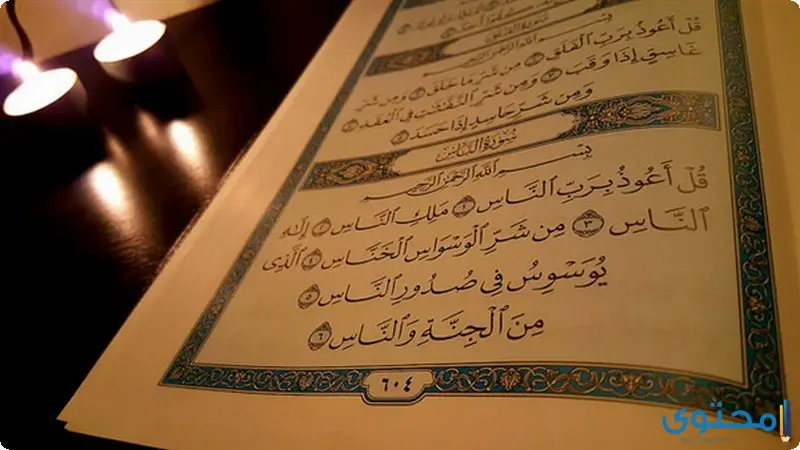 سُورَةُ الفَلَقِ
بِسْمِ اللَّهِ الرَّحْمَٰنِ الرَّحِيمِ
قُلْ أَعُوذُ بِرَبِّ ٱلْفَلَقِ ١ مِن شَرِّ مَا خَلَقَ ٢ وَمِن شَرِّ
غَاسِقٍ إِذَا وَقَبَ ٣ وَمِن شَرِّ ٱلنَّفَّٰثَٰتِ فِى ٱلْعُقَدِ ٤
وَمِن شَرِّ حَاسِدٍ إِذَا حَسَدَ ٥
سُورَةُ النَّاسِ
بِسْمِ اللَّهِ الرَّحْمَٰنِ الرَّحِيمِ
قُلْ أَعُوذُ بِرَبِّ ٱلنَّاسِ ١ مَلِكِ ٱلنَّاسِ ٢ إِلَٰهِ
ٱلنَّاسِ ٣ مِن شَرِّ ٱلْوَسْوَاسِ ٱلْخَنَّاسِ ٤ ٱلَّذِى
يُوَسْوِسُ فِى صُدُورِ ٱلنَّاسِ ٥
مِنَ ٱلْجِنَّةِ وَٱلنَّاسِ ٦
٦٠٤
محتوى